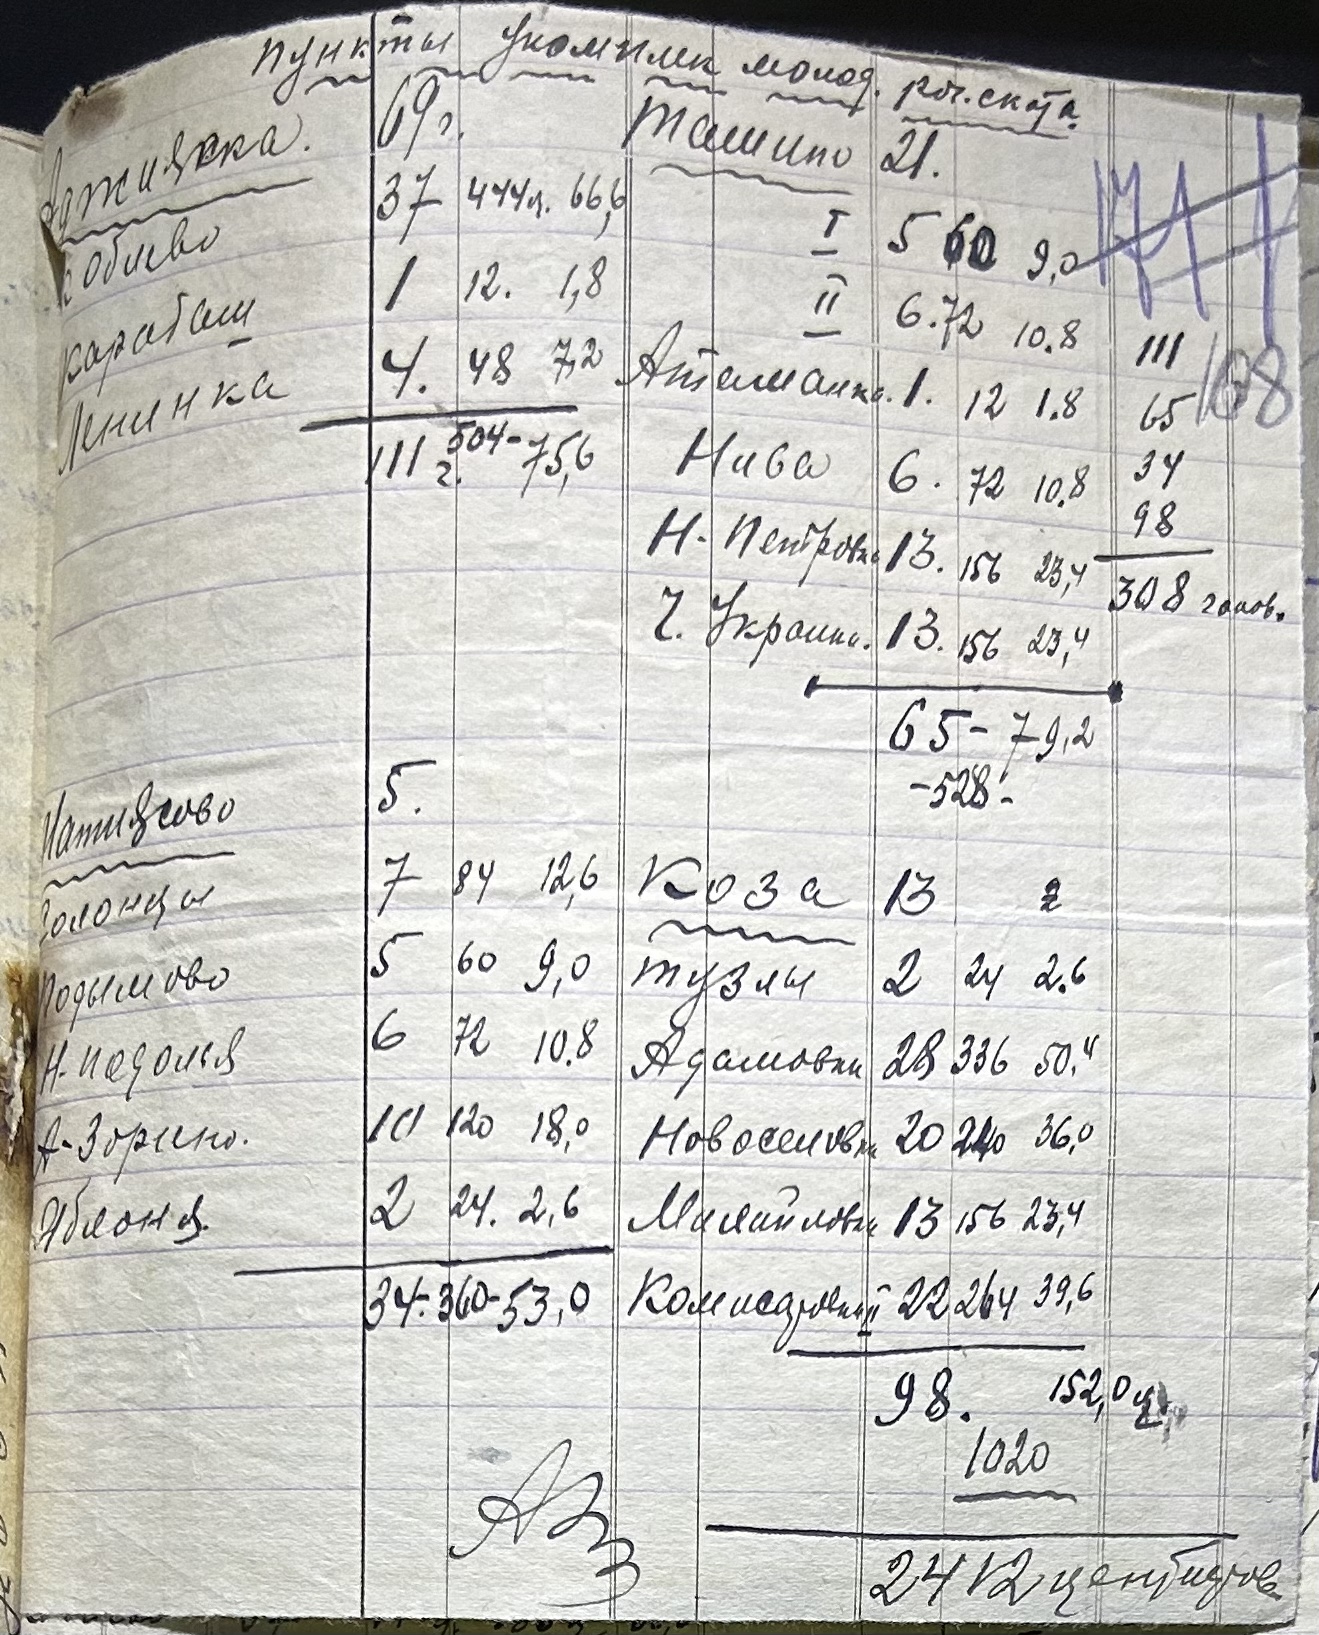 Пункты укомплек молод. рог. скота
Аджияска. 69 г.
Коблево 37 444ц. 66,6
Карабаш 1 12. 1,8
Ленинка 4. 48 7,2
111 г. 504 - 75,6
Матиясово 5.
Солонцы 7 84 12,6
Подымово 5 60 9,0
Н-Подолья 6 72 10.8
А-Зорино. 10 120 18,0
Яблоня. 2 24. 2,6
34. 360 - 53,0
Ташино 21.
I 5 60 9,0
II 6. 72 10.8
Атаманка. 1. 12 1.8
Нива 6. 72 10.8
Н-Петровка 13. 156 23,4
Ч. Украинка. 13. 156 23,4
65 - 79,2
-528-
Коза 13
Тузлы 2 24 2.6
Адамовка 28 336 50,4
Новоселовка 20 240 36,0
Михайловка 13 156 23,4
Комисаровка II 22 264 39,6
98. 152,0 ц.
1020
2412 центнеров
171
108
111
65
34
98
308 голов.